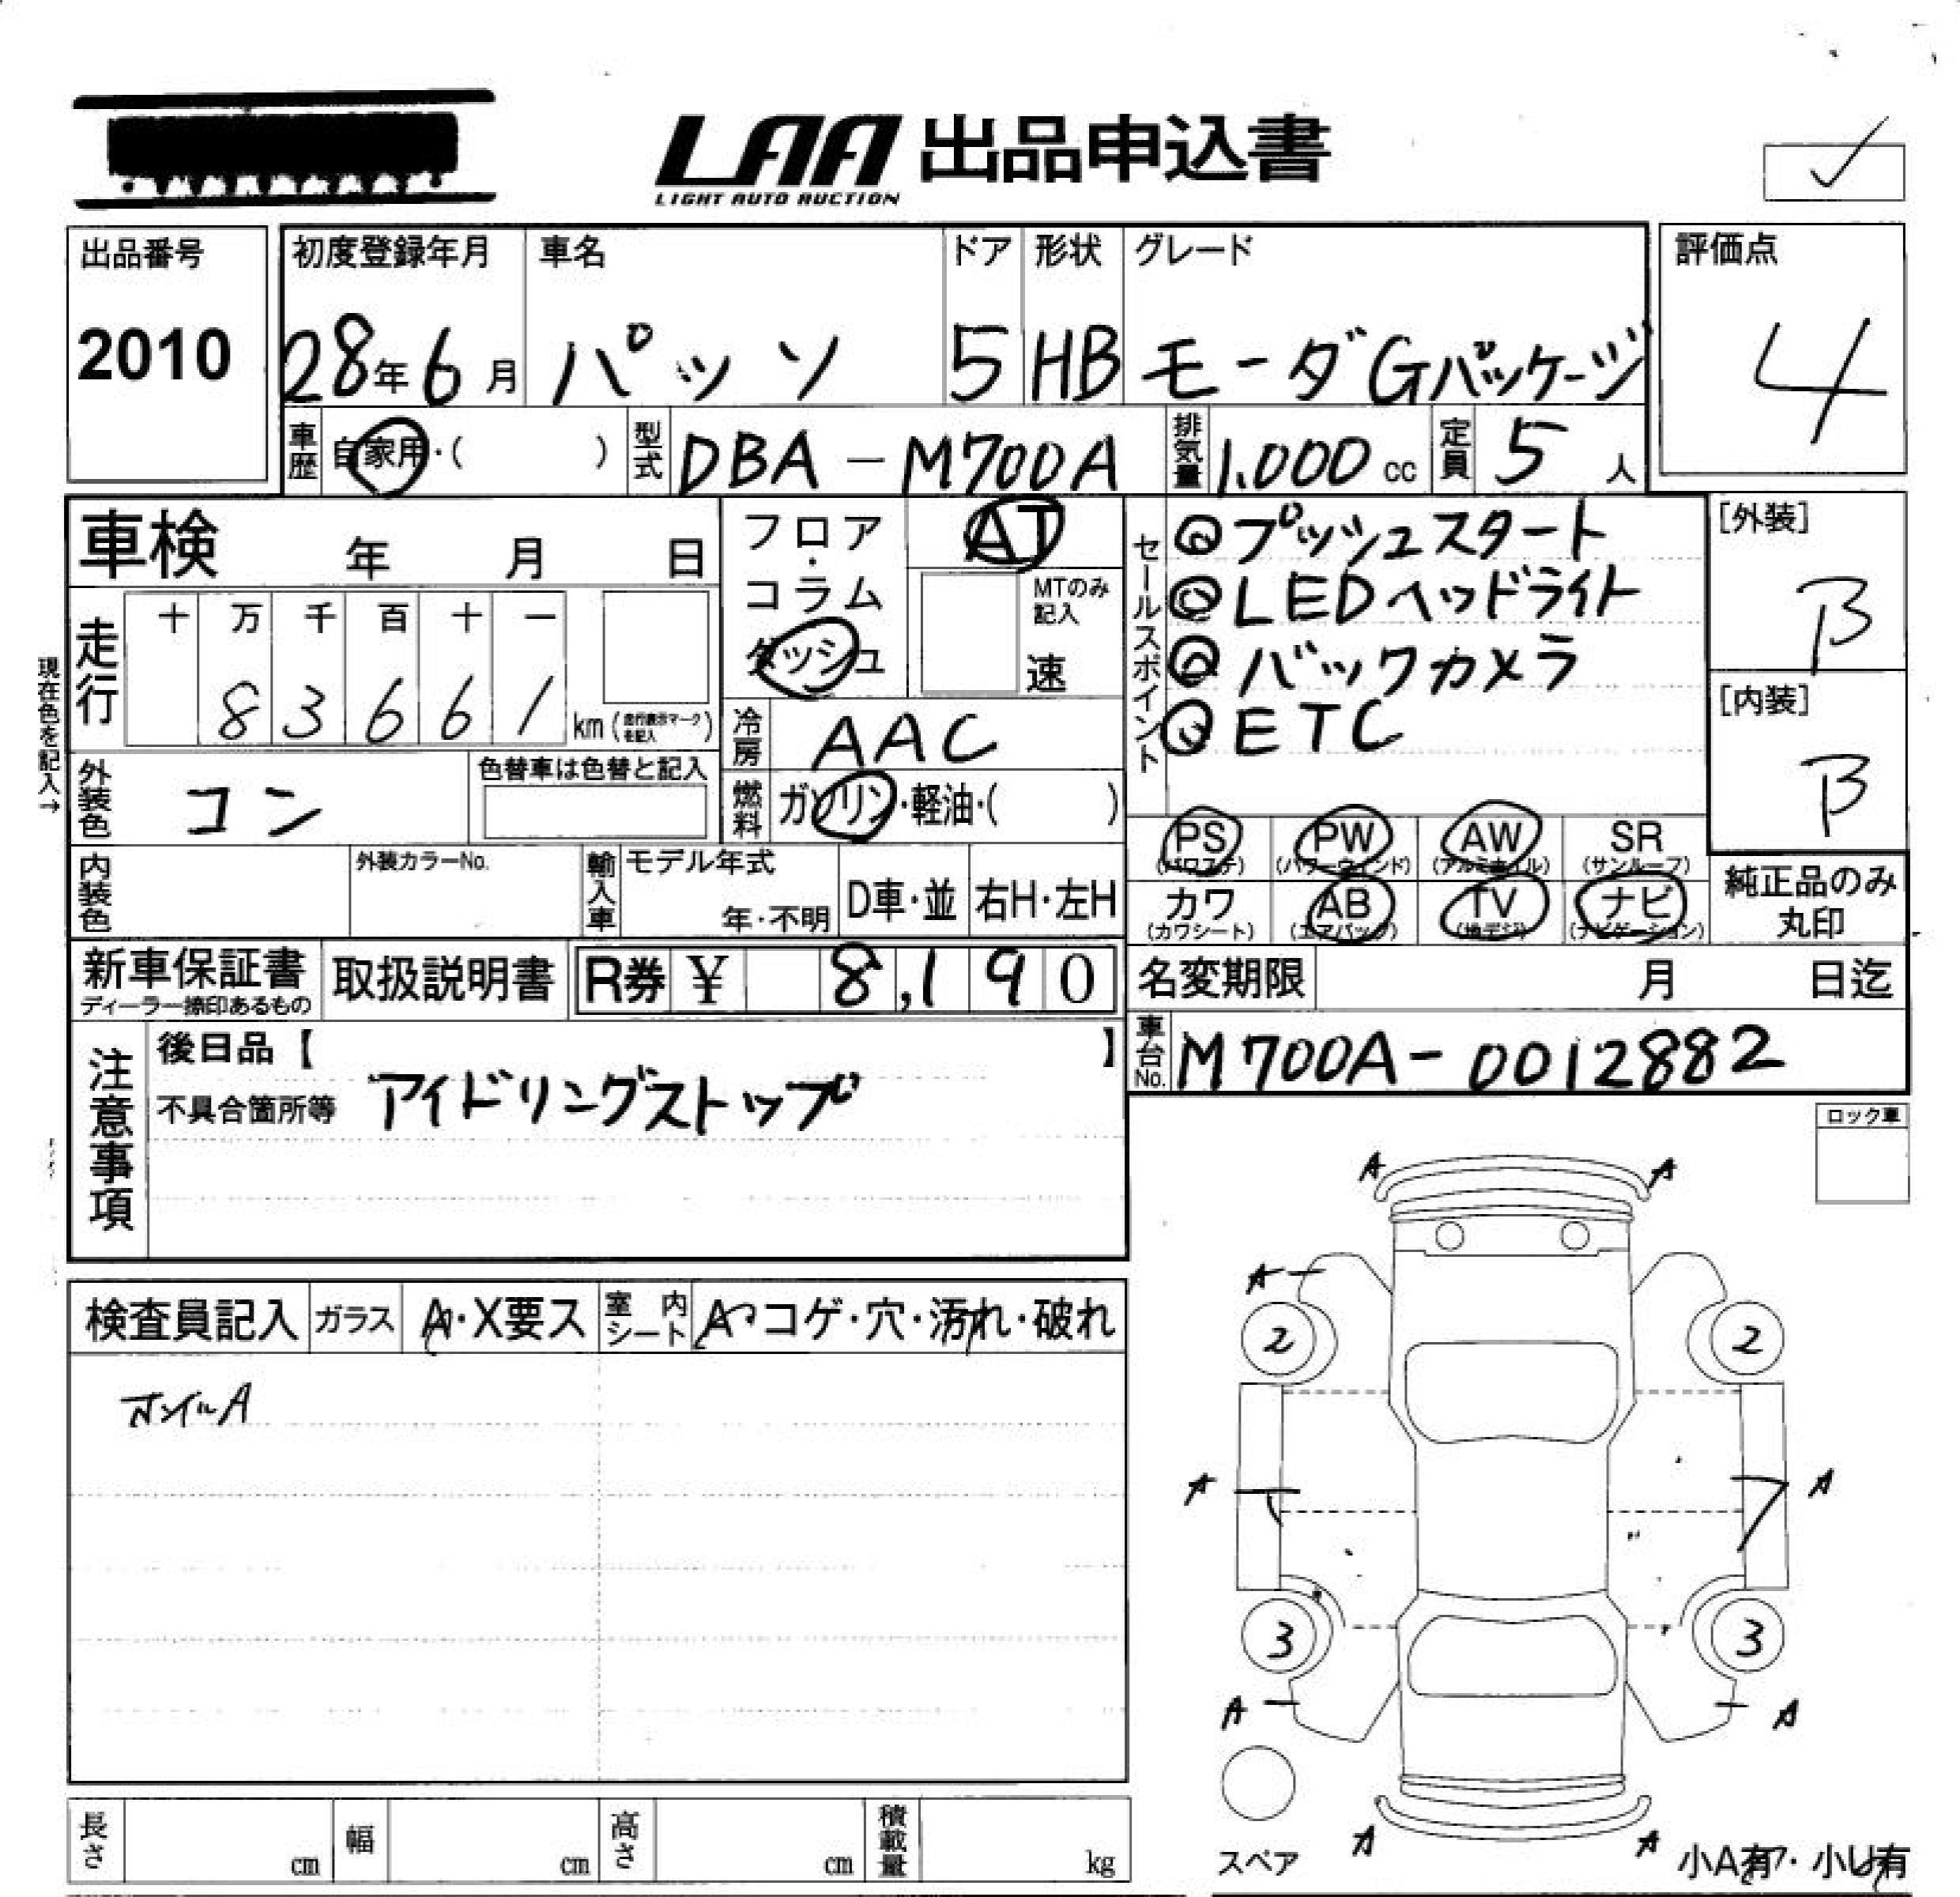 LAA 出品申込書
LIGHT AUTO AUCTION
出品番号
2010
初度登録年月 車名 ドア 形状 グレード
28年6月 パッソ 5 HB モーダGパッケージ
評価点
4
車歴 自家用・( ) 型式 DBA-M700A 排気量 1.000cc 定員 5人
車検 年 月 日
フロア・コラム ダッシュ
AT
MTのみ記入
速
セールスポイント
◎プッシュスタート
◎LEDヘッドライト
◎バックカメラ
◎ETC
[外装]
B
[内装]
B
現在色を記入→
走行 十 万 千 百 十 一
83661 km(走行表示マークを記入)
冷房 AAC
外装色 コン 色替車は色替と記入
燃料 ガソリン・軽油・( )
PS PW AW SR
(パワステ) (パワーウインド) (アルミホイル) (サンルーフ)
カワ AB TV ナビ
(カワシート) (エアバック) (地デジ) (ナビゲーション)
純正品のみ
丸印
内装色 外装カラーNo. 輸入車 モデル年式 年・不明 D車・並 右H・左H
新車保証書 取扱説明書 R券 ¥ 8,190
ディーラー捺印あるもの
名変期限 月 日迄
車台No. M700A-0012882
注意事項
後日品【 】
不具合箇所等 アイドリングストップ
ロック車
検査員記入 ガラス A・X要ス 室内シート A・コゲ・穴・汚れ・破れ
ホイルA
A A
A
2 2
A A
3 3
A A
スペア
A A
小A有・小U有
長さ cm 幅 cm 高さ cm 積載量 kg